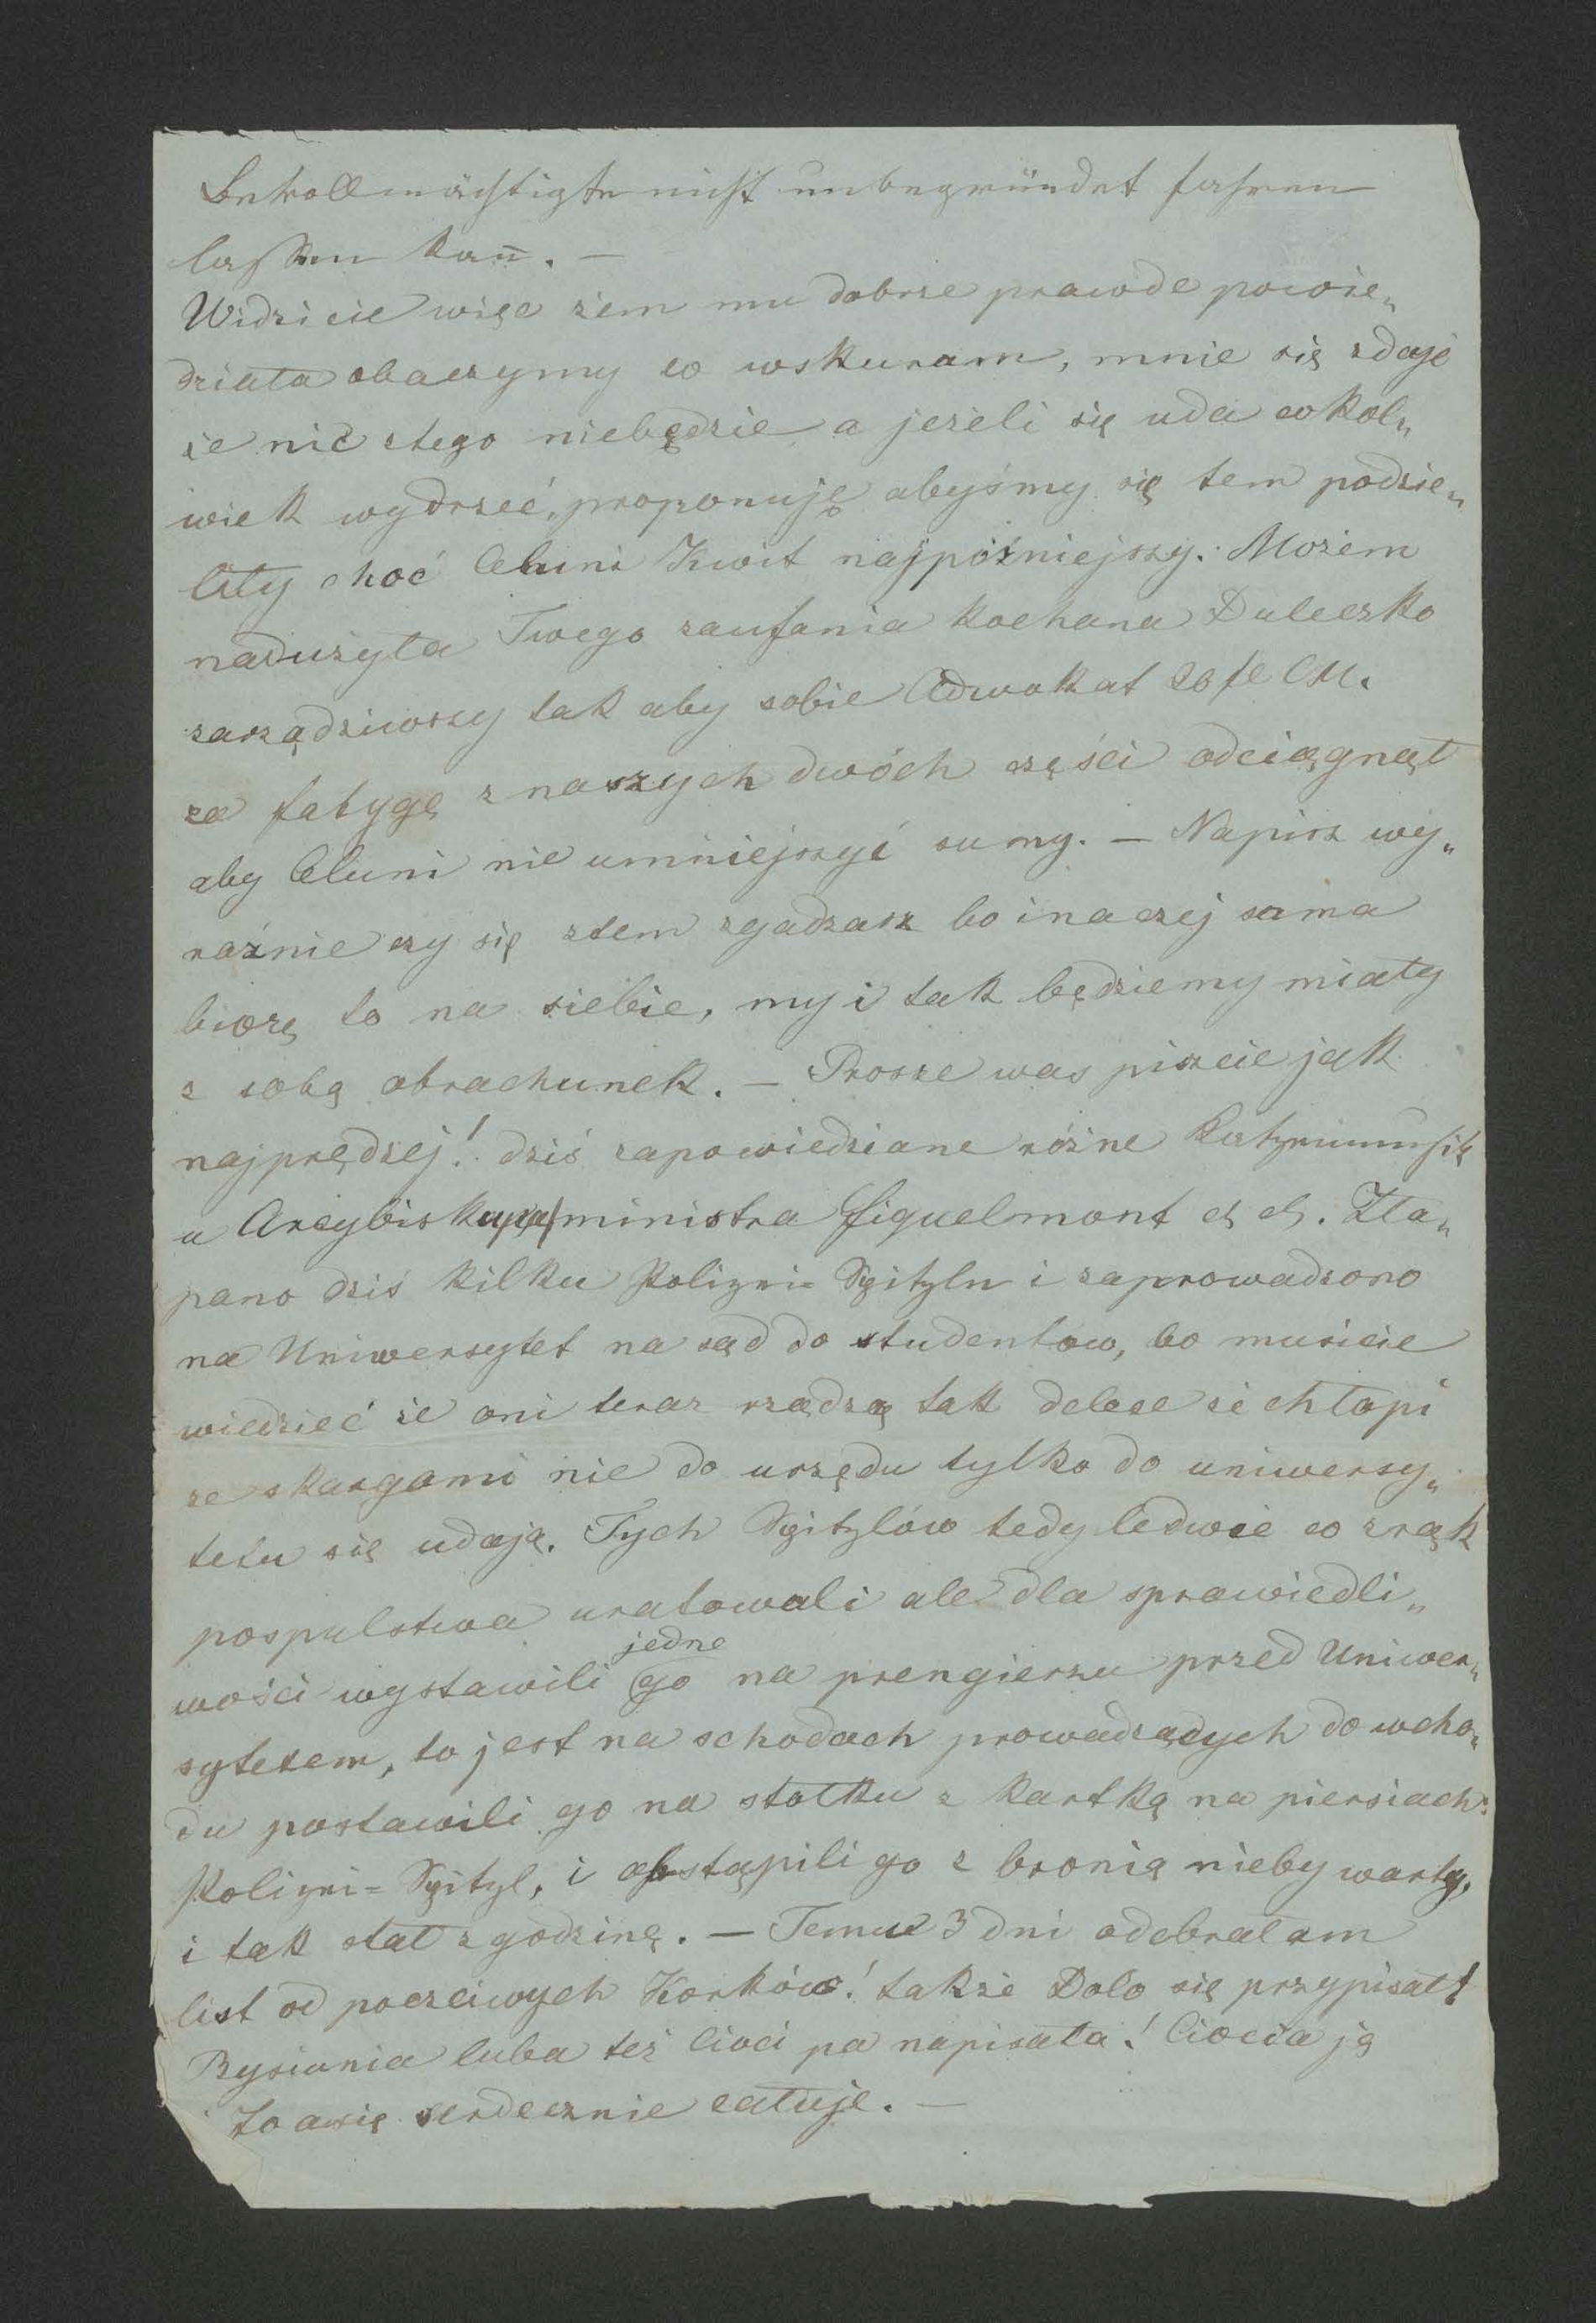 Bevollmächtigte nicht unbegründet fahren
lassen kan̄. —
Widzicie więc żem mu dobrze prawde powie„
działa obaczymy co wskuram, mnie się zdaje
że nic ztego niebędzie a jeżeli się uda cokol„
wiek wydrzeć, proponuję abyśmy się tem podzie„
liły choć Celuni Kwit najpóźniejszy. Możem
nadużyła Twego zaufania kochana Duleczko
zarządziwszy tak aby sobie Adwokat 20 fl CM.
za fatygę z naszych dwóch części odciągnął
aby Celuni nie umniejszyć sumy. — Napisz wy„
raźnie czy się ztem zgadzasz bo inaczej sama
biorę to na siebie, my i tak będziemy miały
z sobą obrachunek. — Prosze was piszcie jak
najprędzej! dziś zapowiedziane różne Katzenmusik
u Arcybiskupa/ministra Fiquelmont etc etc. Zła„
pano dziś kilku Polizei-Spitzln i zaprowadzono
na Uniwersytet na sąd do studentow, bo musicie
wiedzieć że oni teraz rządzą tak dalece że chłopi
ze skargami nie do urzędu tylko do uniwersy„
tetu się udają. Tych Spitzlów tedy ledwie co zrąk
pospulstwa uratowali ale dla sprawiedli„
wości wystawili jedne
go na prengierzu przed Uniwer„
sytetem, to jest na schodach prowadzących do wcho„
du postawili go na stołku z kartką na piersiach:
Polizei-Spitzl, i obstąpili go z bronią nieby warty,
i tak stał z godzinę. — Temu 3 dni odebrałam
list od poczciwych Korków! także Dolo się przypisał!
Rysiunia luba też Cioci pa napisała! Ciocia ją
za to serdecznie całuje. —